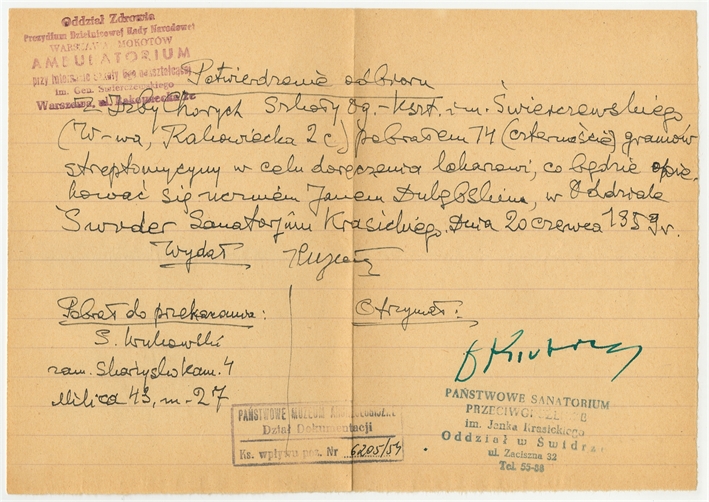 Oddział Zdrowia
Prezydium Dzielnicowej Rady Narodowej
WARSZAWA MOKOTÓW
AMBULATORIUM
przy Internacie Szkoły
im. Gen. Świerczewskiego
Warszawa, ul. Rakowiecka 2c
Potwierdzenie odbioru
Z Izby Chorych Szkoły Og.-Kszt. im. Świerczewskiego
(W-wa, Rakowiecka 2c) pobrałem 14 (czternaście) gramów
streptomycyny w celu doręczenia lekarzowi, co będzie opie-
kować się uczniem Janem w Oddziale
Świder Sanatorjum Krasickiego. Dnia 20 czerwca 1959 r.
Wydał
Pobrał do przekazania:
S. Wutkowski
zam. Skarżysko kam. 4
Milica 43, m-27
Otrzymał:
PAŃSTWOWE SANATORIUM
im. Janka Krasickiego
Oddział w Świdrze
ul. Zaciszna 32
Tel. 55-88
PAŃSTWOWE MUZEUM ARCHEOLOGICZNE
Dział Dokumentacji
Ks. wpływu poz. Nr 6205/54